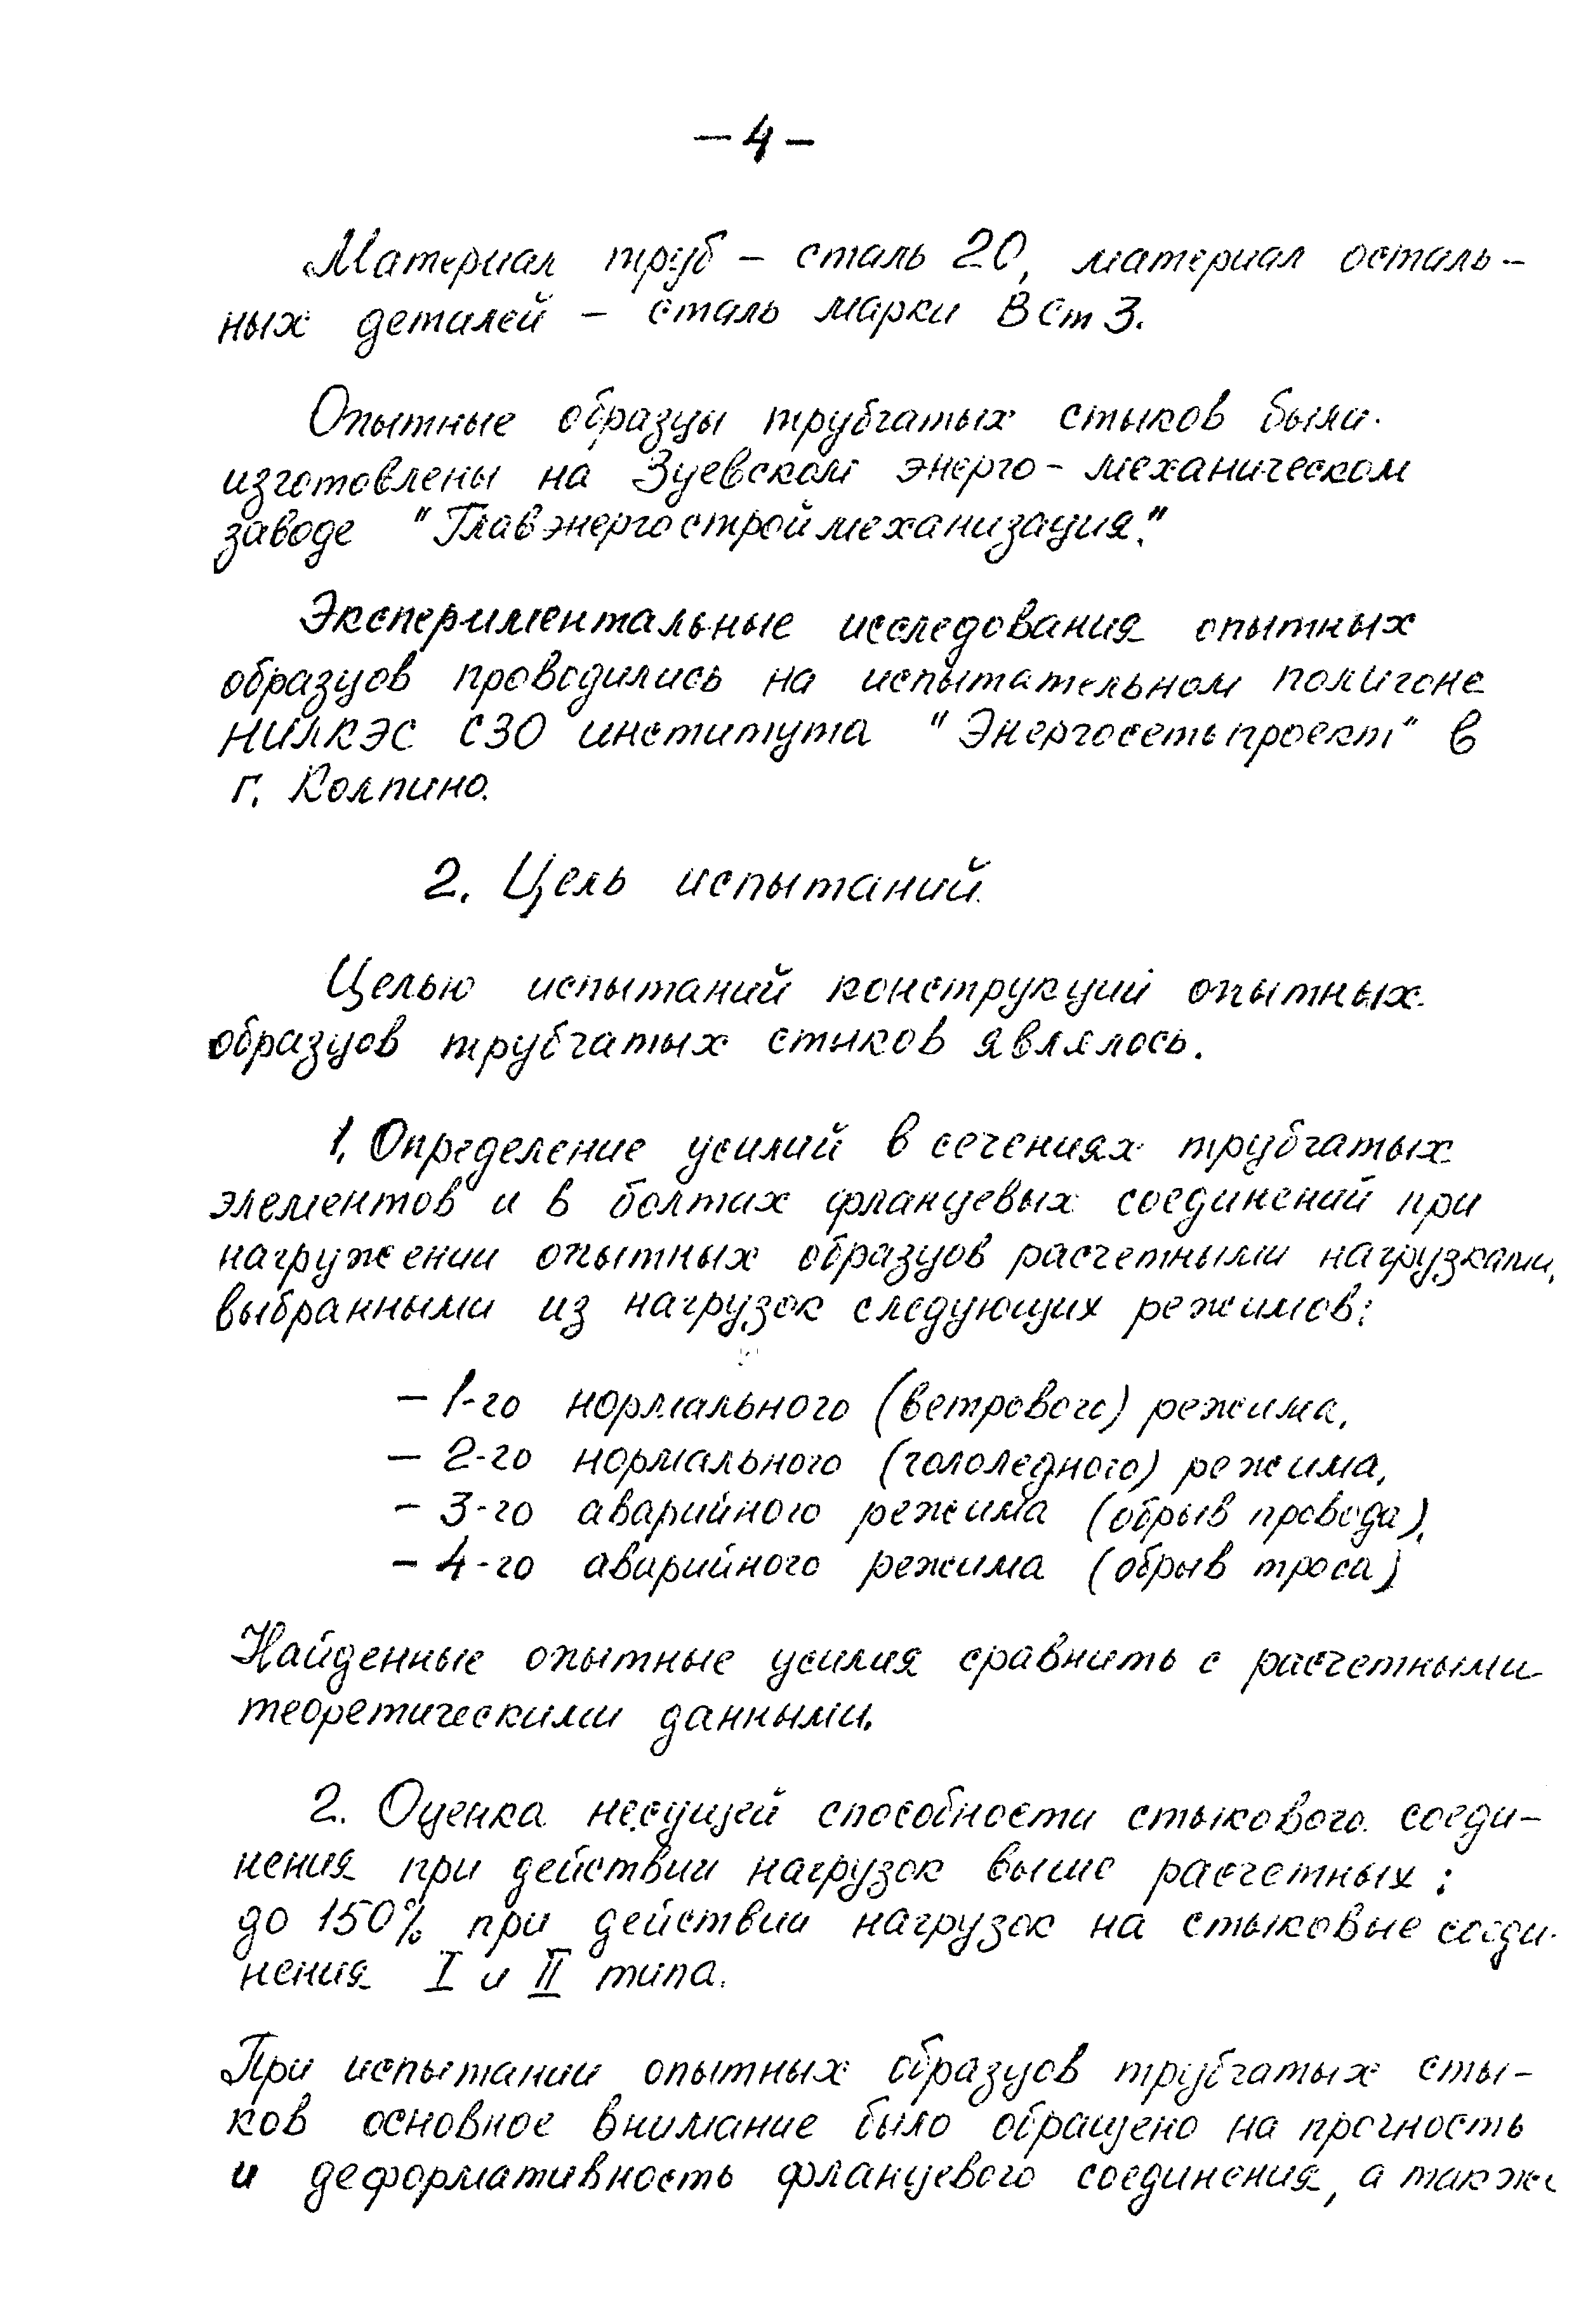 – 4 –
Материал труб – сталь 20, материал осталь-
ных деталей – сталь марки ВСт3.
Опытные образцы трубчатых стыков были
изготовлены на Зуевском энерго-механическом
заводе "Главэнергостроймеханизация".
Экспериментальные исследования опытных
образцов проводились на испытательном полигоне
НИЛКЭС СЗО института "Энергосетьпроект" в
г. Колпино.
2. Цель испытаний.
Целью испытаний конструкций опытных
образцов трубчатых стыков являлось.
1. Определение усилий в сечениях трубчатых
элементов и в болтах фланцевых соединений при
нагружении опытных образцов расчетными нагрузками,
выбранными из нагрузок следующих режимов:
– 1-го нормального (ветрового) режима,
– 2-го нормального (гололедного) режима,
– 3-го аварийного режима (обрыв провода),
– 4-го аварийного режима (обрыв троса)
Найденные опытные усилия сравнить с расчетными
теоретическими данными.
2. Оценка несущей способности стыкового соеди-
нения при действии нагрузок выше расчетных:
до 150% при действии нагрузок на стыковые соеди-
нения I и II типа.
При испытании опытных образцов трубчатых сты-
ков основное внимание было обращено на прочность
и деформативность фланцевого соединения, а также